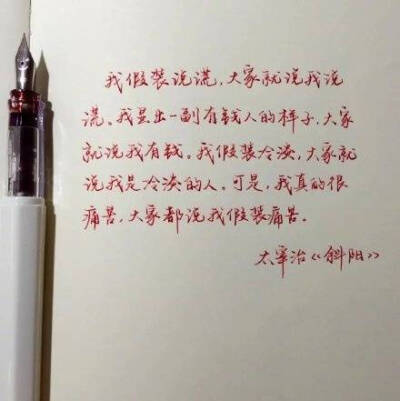 我假装说谎,大家就说我说
谎。我显出一副有钱人的样子,大家
就说我有钱。我假装冷淡,大家就
说我是冷淡的人。可是,我真的很
痛苦,大家都说我假装痛苦。
太宰治《斜阳》